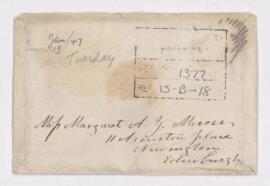 Jan/47
13
Tuesday
1377
15-B-18
Miss Margaret A. Y. Mercer
11 Arniston place
Newington
Edinburgh